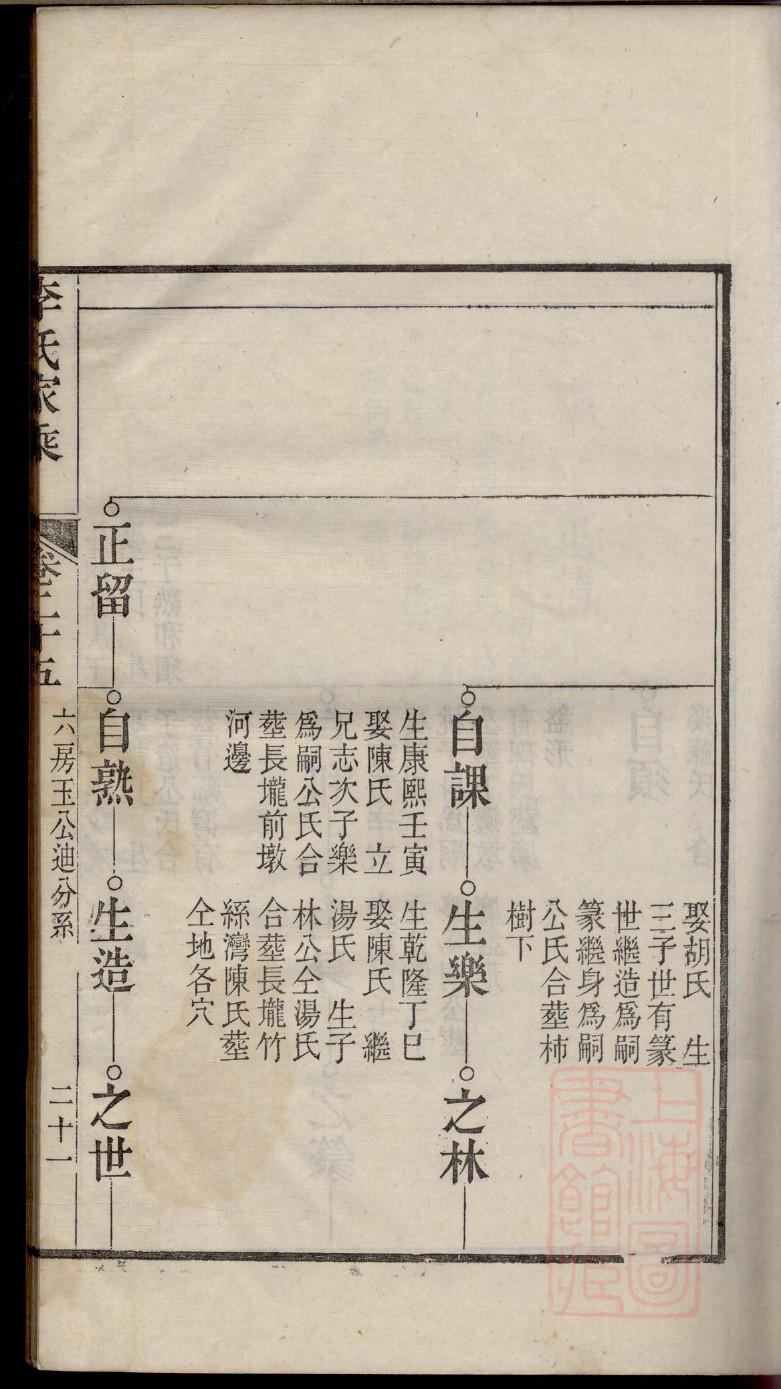 娶胡氏　生
三子世有篆
世繼造爲嗣
篆繼身爲嗣
公氏合塟柿
樹下
自課
生康熙壬寅
娶陳氏　立
兄志次子樂
爲嗣公氏合
塟長壠前墩
河邊
生樂
生乾隆丁巳
娶陳氏　繼
湯氏　生子
林公仝湯氏
合塟長壠竹
絲灣陳氏塟
仝地各穴
之林
正留
自熟
生造
之世
李氏家乘
卷二十五
六房玉公迪分系
二十一
上海圖
書館藏